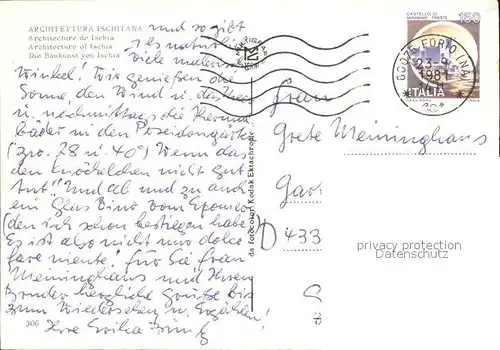 ARCHITETTURA ISCHITANA
Architecture de Ischia
Architecture of Ischia
Die Baukunst von Ischia
und so gibt
es natürlich
viele malerische
Winkel! Wir genießen die
Sonne, den Wind u. das Meer
u. nachmittags die Thermal
bäder in den Poseidongärten
(zw. 28 u. 40°) Wenn das
den Knöchelchen nicht gut
tut! Und ab und zu auch
ein Glas Vino vom Epomeo
(den ich schon bestiegen habe)
Es ist also nicht nur dolce
fare niente! Für Sie Frau
Meininghaus und Ihren
Bruder herzliche Grüße bis
zum Wiedersehen u. Erzählen!
Ihre Erika
306
da fotocolori Kodak Ektachrome
CASTELLO DI
MIRAMARE - TRIESTE
150
ITALIA
80075 FORIO (NA)
23-9
1981
Frau
Grete Meininghaus
D 433
privacy protection
Datenschutz